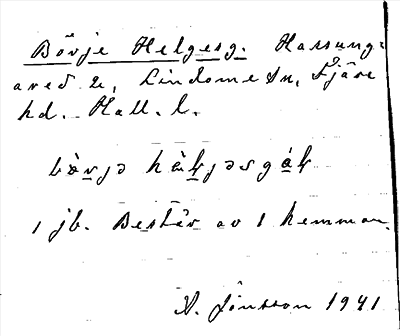 Börje Helgesg. Hassung=
ared 2, Lindome sn, Fjäre
hd. Hall. l.
1 jb. Består av 1 hemman.
V. Jönsson 1941